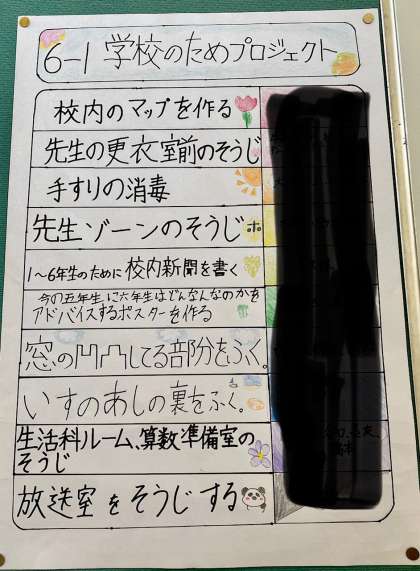 6-1 学校のためプロジェクト
校内のマップを作る
先生の更衣室前のそうじ
手すりの消毒
先生ゾーンのそうじ
1〜6年生のために校内新聞を書く
今の五年生に六年生はどんなんなのかを
アドバイスするポスターを作る
窓の凹凸してる部分をふく。
いすのあしの裏をふく。
生活科ルーム、算数準備室の
そうじ
放送室をそうじする